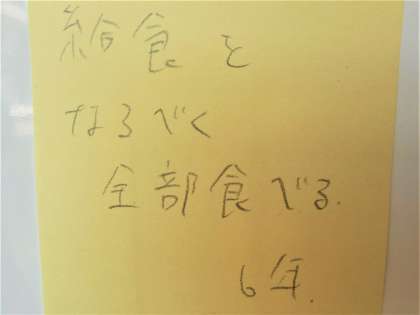 給食を
なるべく
全部食べる.
6年.